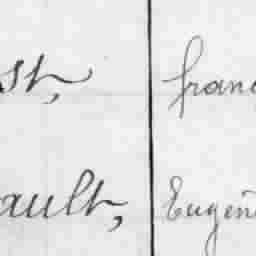 st, franç
ault, Eugén